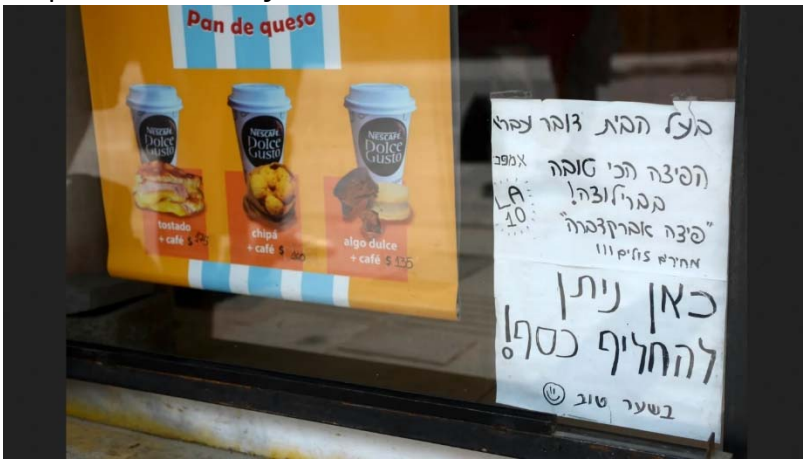 Pan de queso
NESCAFÉ
Dolce
Gusto
NESCAFÉ
Dolce
Gusto
NESCAFÉ
Dolce
Gusto
tostado
+ café $
chipá
+ café $
algo dulce
+ café $ 135
בעל הבית דובר עברית
הפיצה הכי טובה
בברילוצה!
"פיצה אברקדברה"
מחירים זולים!!!
LA
10
כאן ניתן
להחליף כסף!
בשער טוב